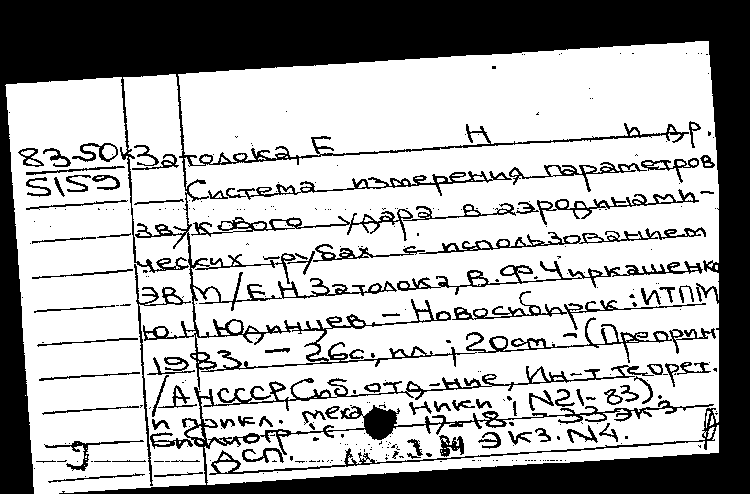 83-50к Затолока, Е Н и др.
5159 Система измерения параметров
звукового удара в аэродинами-
ческих трубах с использованием
ЭВМ / Е.Н. Затолока, В.Ф. Чиркашенко
Ю.Н. Юдинцев. - Новосибирск : ИТПМ
1983. - 26с., ил. ; 20см. - (Препринт
/АНСССР, Сиб. отд-ние, Ин-т теорет.
и прикл. механики ; N21-83).
Библиогр.: с. 17-18. - 33 экз.
ДСП. ЭКЗ. N4.